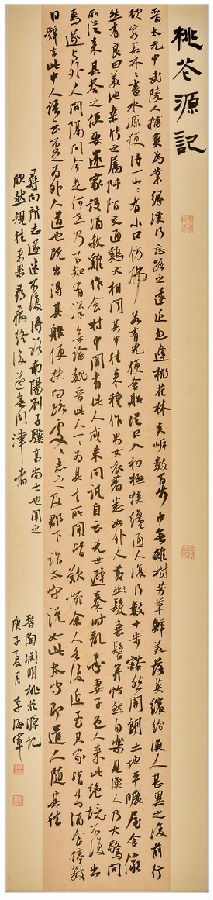 桃花源記
晉太元中武陵人捕魚為業緣溪行忘路之遠近忽逢桃花林夾岸數百步中無雜樹芳草鮮美落英繽紛漁人甚異之復前行
欲窮其林林盡水源便得一山山有小口彷彿若有光便舍船從口入初極狹纔通人復行數十步豁然開朗土地平曠屋舍儼
然有良田美池桑竹之屬阡陌交通雞犬相聞其中往來種作男女衣著悉如外人黃髮垂髫並怡然自樂見漁人乃大驚問
所從來具答之便要還家設酒殺雞作食村中聞有此人咸來問訊自云先世避秦時亂率妻子邑人來此絕境不復出
焉遂與外人間隔問今是何世乃不知有漢無論魏晉此人一一為具言所聞皆歎惋餘人各復延至其家皆出酒食停數
日辭去此中人語云不足為外人道也既出得其船便扶向路處處誌之及郡下詣太守說如此太守即遣人隨其往
尋向所誌遂迷不復得路南陽劉子驥高尚士也聞之
欣然規往未果尋病終後遂無問津者
晉陶淵明桃花源記
庚子夏月李海軍